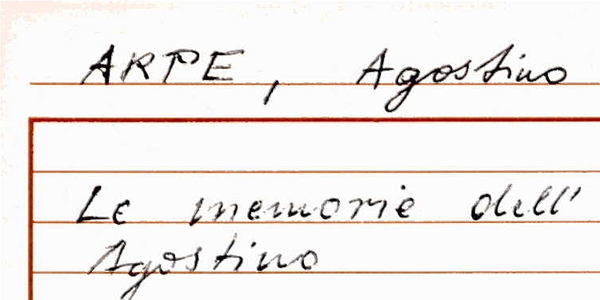 ARPE, Agostino
Le memorie dell'
Agostino